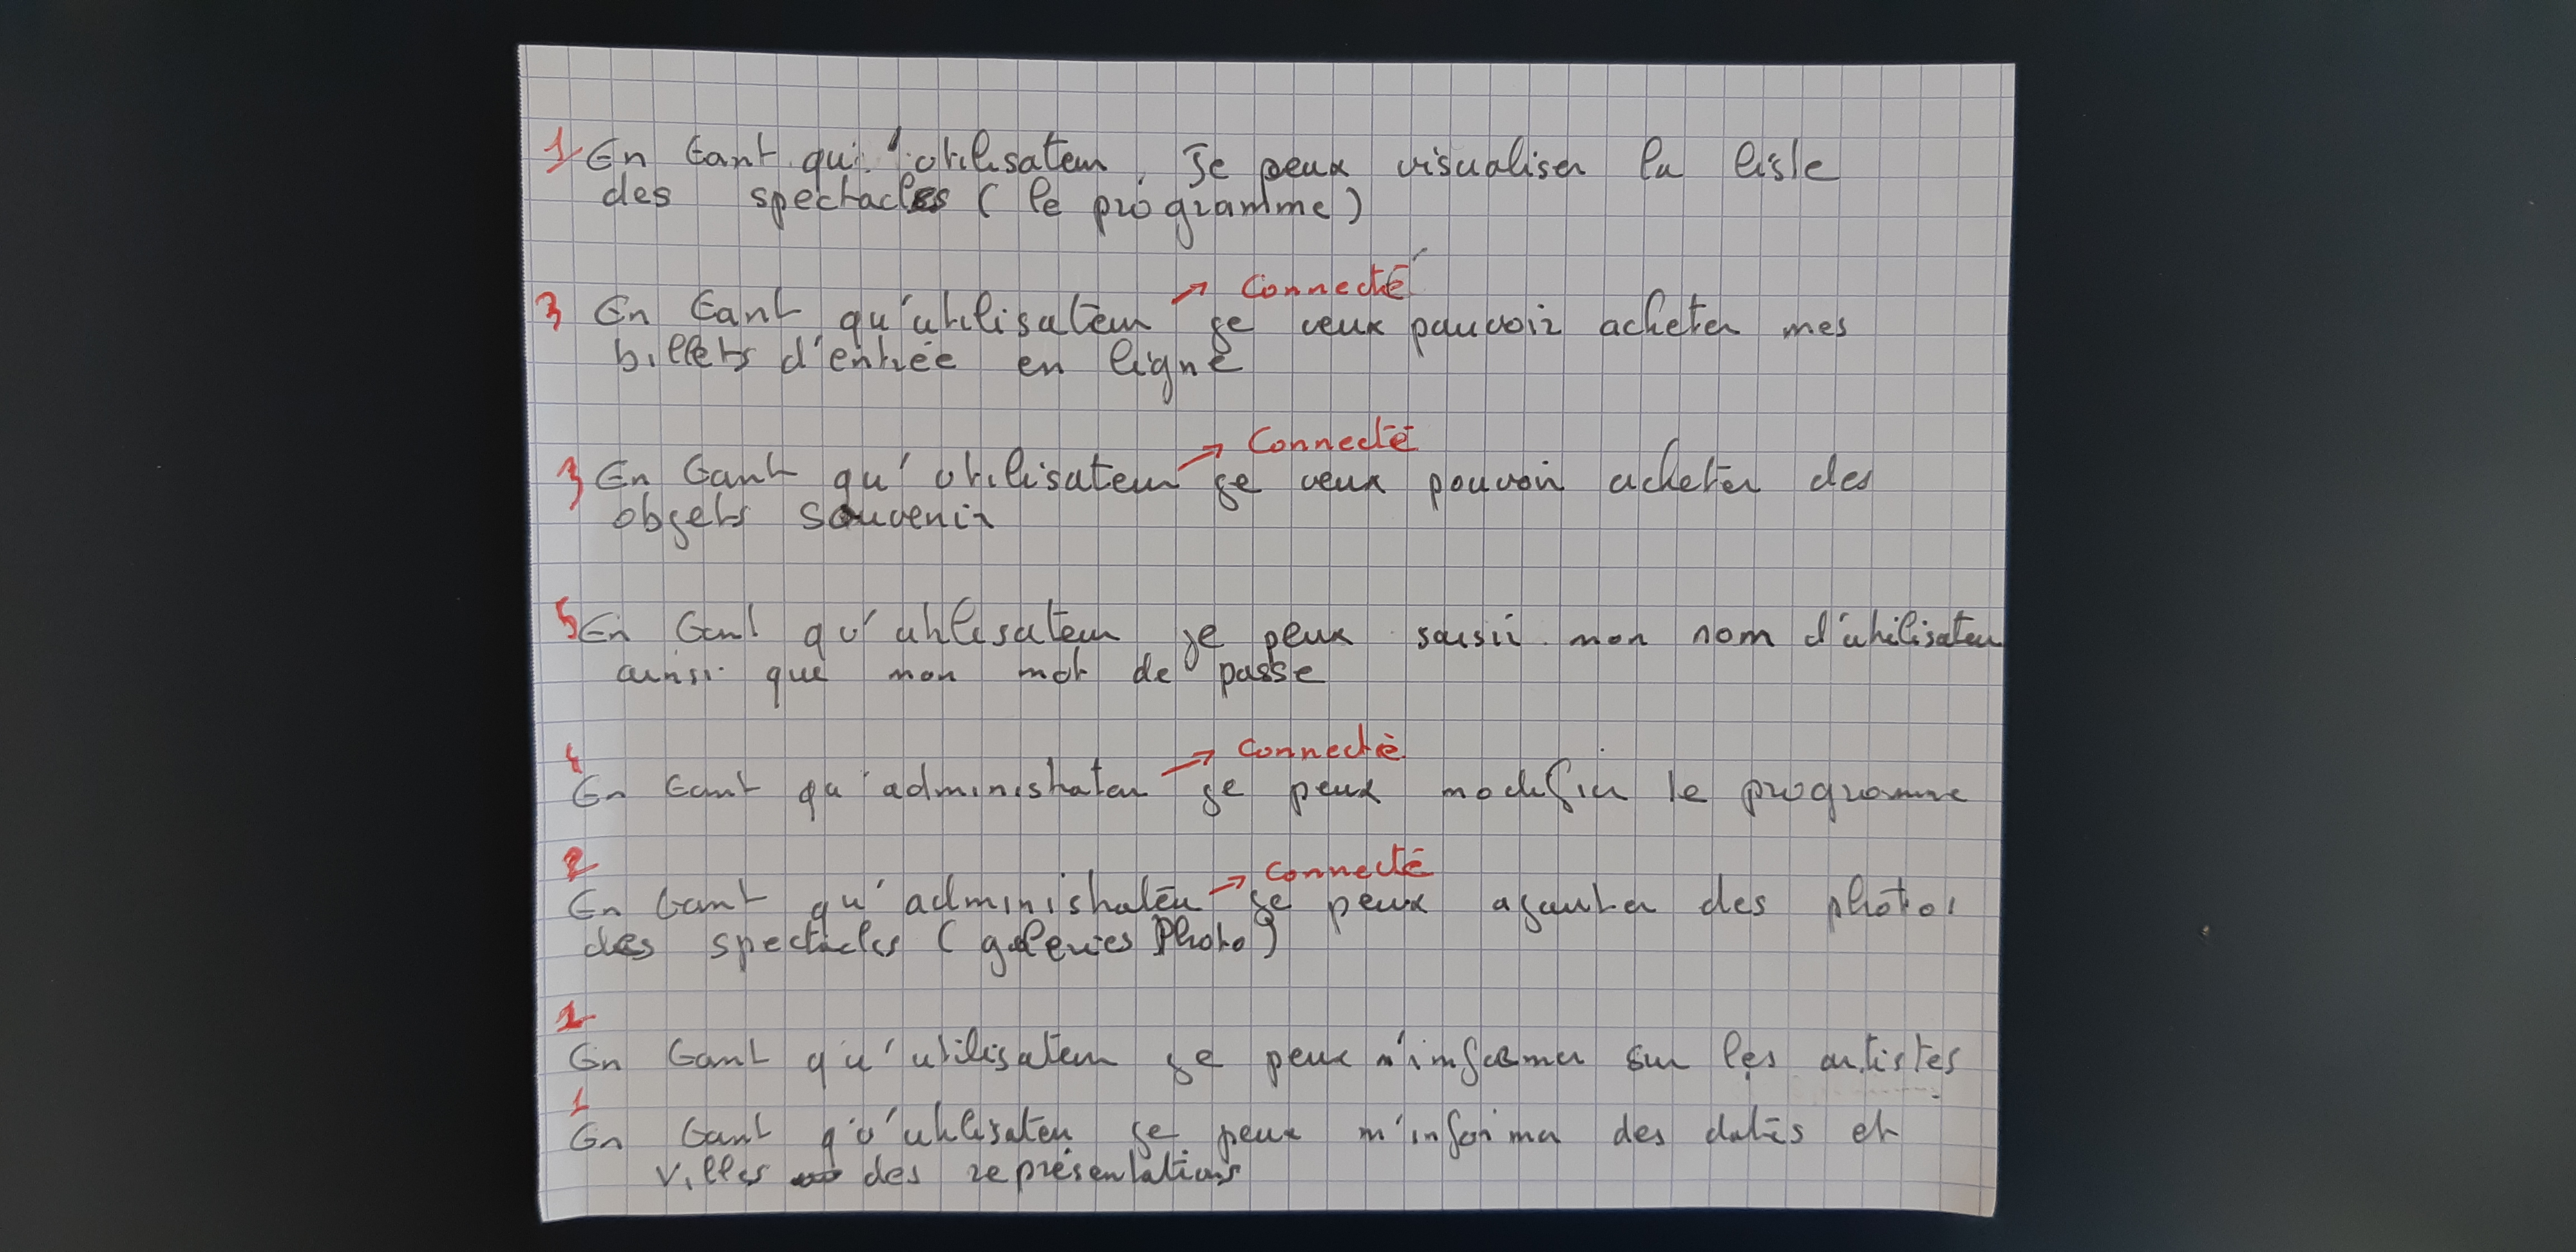 1 En tant qu'utilisateur, Je peux visualiser la liste
des spectacles ( le programme )
→ Connecté
3 En tant qu'utilisateur je veux pouvoir acheter mes
billets d'entrée en ligne
→ Connecté
3 En tant qu'utilisateur je veux pouvoir acheter des
objets souvenir
5 En tant qu'utilisateur je peux saisir mon nom d'utilisateur
ainsi que mon mot de passe
→ Connecté
4
En tant qu'administrateur je peux modifier le programme
2 → Connecté
En tant qu'administrateur je peux ajouter des photos
des spectacles ( galeries Photo )
1
En tant qu'utilisateur je peux m'informer sur les artistes
1
En tant qu'utilisateur je peux m'informer des dates et
villes des représentations